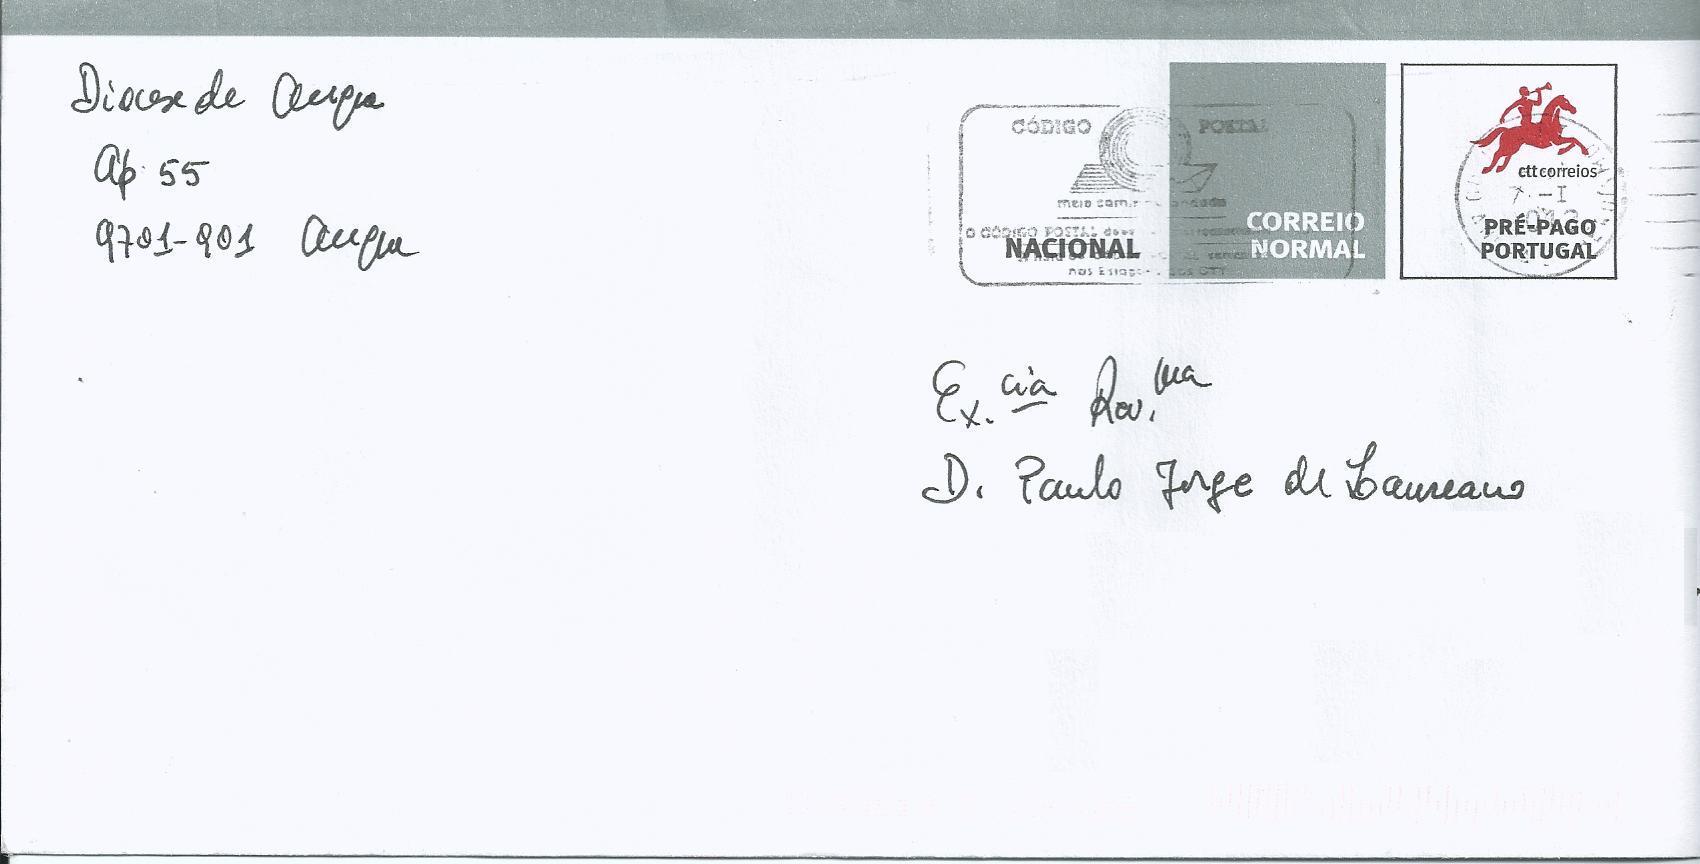 Diocese de Angra
Ap. 55
9701-901 Angra
CÓDIGO POSTAL
meio cam
O CÓDIGO POSTAL
nas CTT
NACIONAL
CORREIO
NORMAL
ctt correios
PRÉ-PAGO
PORTUGAL
Ex.cia Rev.ma
D. Paulo Jorge de Laureano